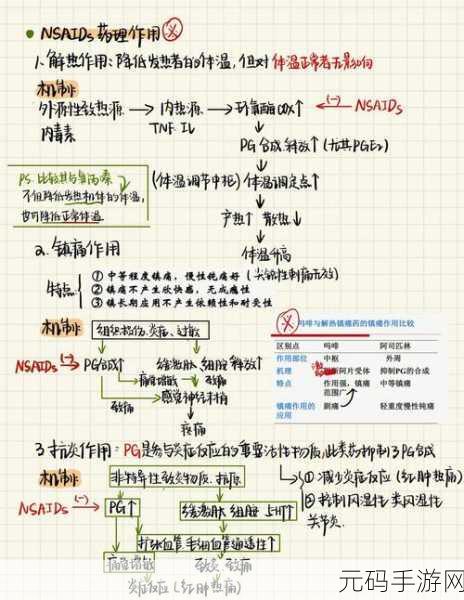 NSAIDs 药理作用
1. 解热作用：降低发热者的体温，但对体温正常者无影响
机制：
外源性致热源 → 内热源 → 环氧酶COX↑ ←(-) NSAIDs
内毒素 TNF IL
PG合成释放↑ (尤其PGE2)
(体温调节中枢) 体温调定点↑
不但降低发热机体的体温，
也可降低正常体温
产热↑ 散热↓
体温升高
2. 镇痛作用
特点：
① 中等程度镇痛，慢性钝痛好 (尖锐性刺痛无效)
② 镇痛不产生欣快感，无成瘾性
③ 镇长期应用不产生依赖性和耐受性
机制：
组织损伤、炎症、过敏
NSAIDs (-) PG合成↑ 缓激肽 组胺 释放↑
痛觉增敏 致痛 致痛
感觉神经末梢
疼痛
吗啡与解热镇痛药的镇痛作用比较
区别点 吗啡 阿司匹林
作用部位 中枢 外周
机理 激 阿片受体 抑制PG的合成
特点 作用强，镇痛范围广 中等镇痛
镇痛作用的应用 剧痛 轻重度慢性钝痛
3. 抗炎作用：PG是参与炎症反应的重要活性物质，此类药抑制了PG合成
机制：
非特异性致炎物质、抗原
① 减少炎症反应 (红肿热痛)
② 控制风湿性 类风湿性
关节炎
NSAIDs (-) PG↑ 缓激肽 组胺 5-HT↑
扩张血管 毛细血管通透性↑
痛觉增敏 致炎 致痛
炎症反应 (红肿热痛)
元码手游网